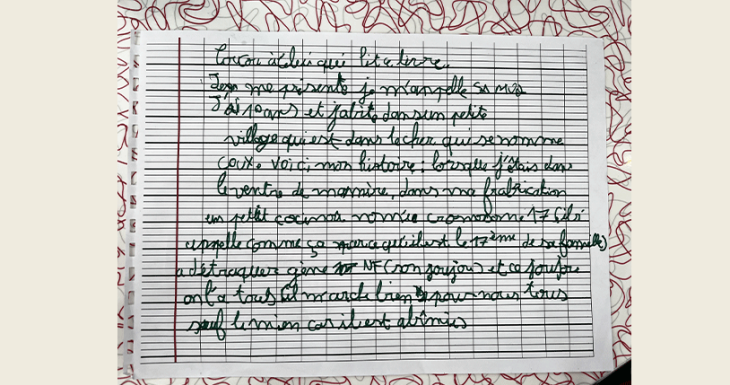 Coucou à celui qui lit ce livre.
Je me présente je m'appelle
J'ai 10 ans et j'abite dans un petit
village qui est dans le cher qui se nomme
. voici mon histoire : lorsque j'étais dans
le ventre de ma mère, dans ma frabrication
un petit nomée cromosome 17 (il s'
appelle comme ça parce qu'il est le 17ème de sa famille)
a détraquer gène NF (son joujou) et ce joujou
on l'a tous il marche bien pour nous tous
sauf le mien car il est abîmés